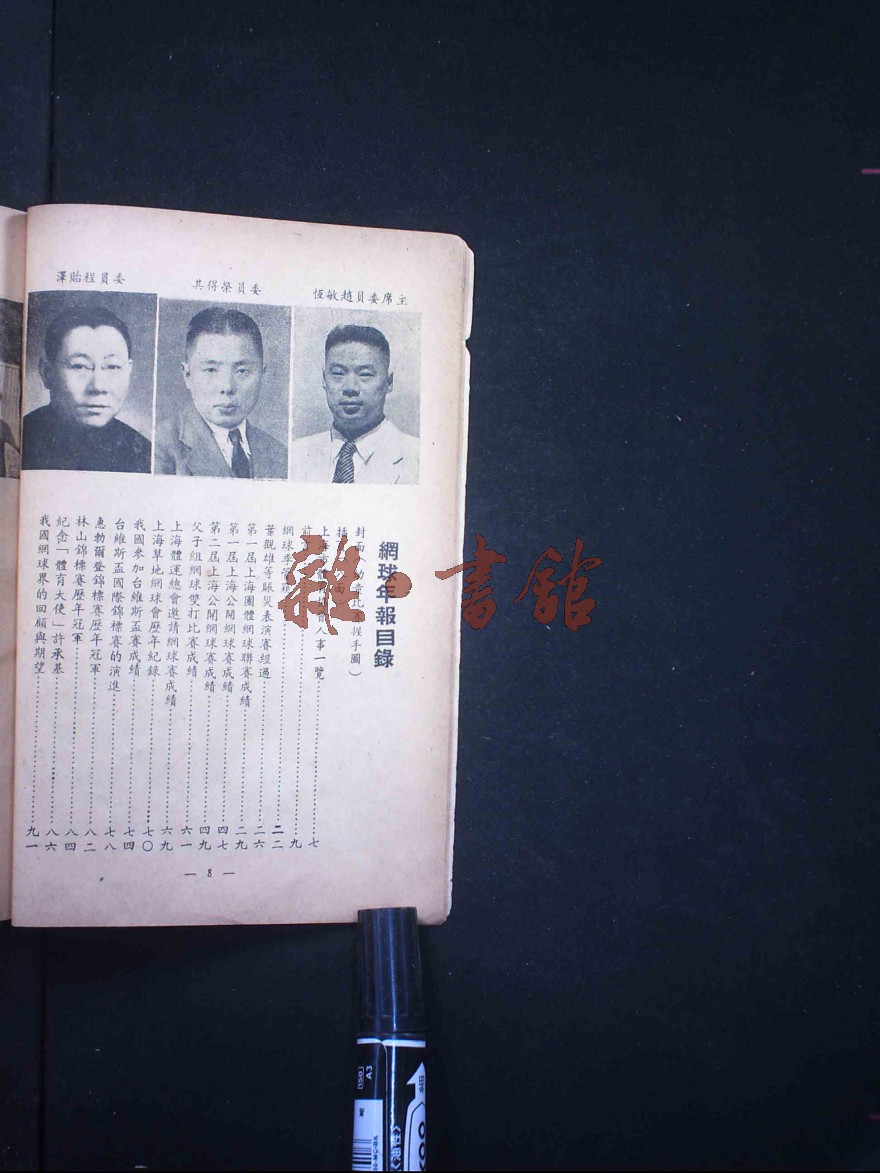 主席委員趙敏恆
委員榮得其
委員程貽澤
網球年報目錄
封面(幼章比恩握手圖)
插 面
上海市 人事一覽……七
前……九
網球季……二二
葉觀雄等賑災表演賽經過……二六
第一屆上海團體網球聯賽成績……二九
第一屆上海公開網球賽成績……四七
第二屆上海公開網球賽成績……四九
父子組網球雙打比賽成績……六一
上海體運總會邀請網球賽成績……六九
上海草地網球會歷年紀錄……七〇
我國參加台維斯盃賽成績……七四
台維斯盃國際錦標賽的演進……七八
惠勃爾登錦標賽歷年冠軍……八二
林山錦標賽歷年冠軍……八四
紀念「體育大使」許承基……八六
我國網球界的回顧與期望……九一
— 8 —
雜·書館
[150]
A3
油性
細